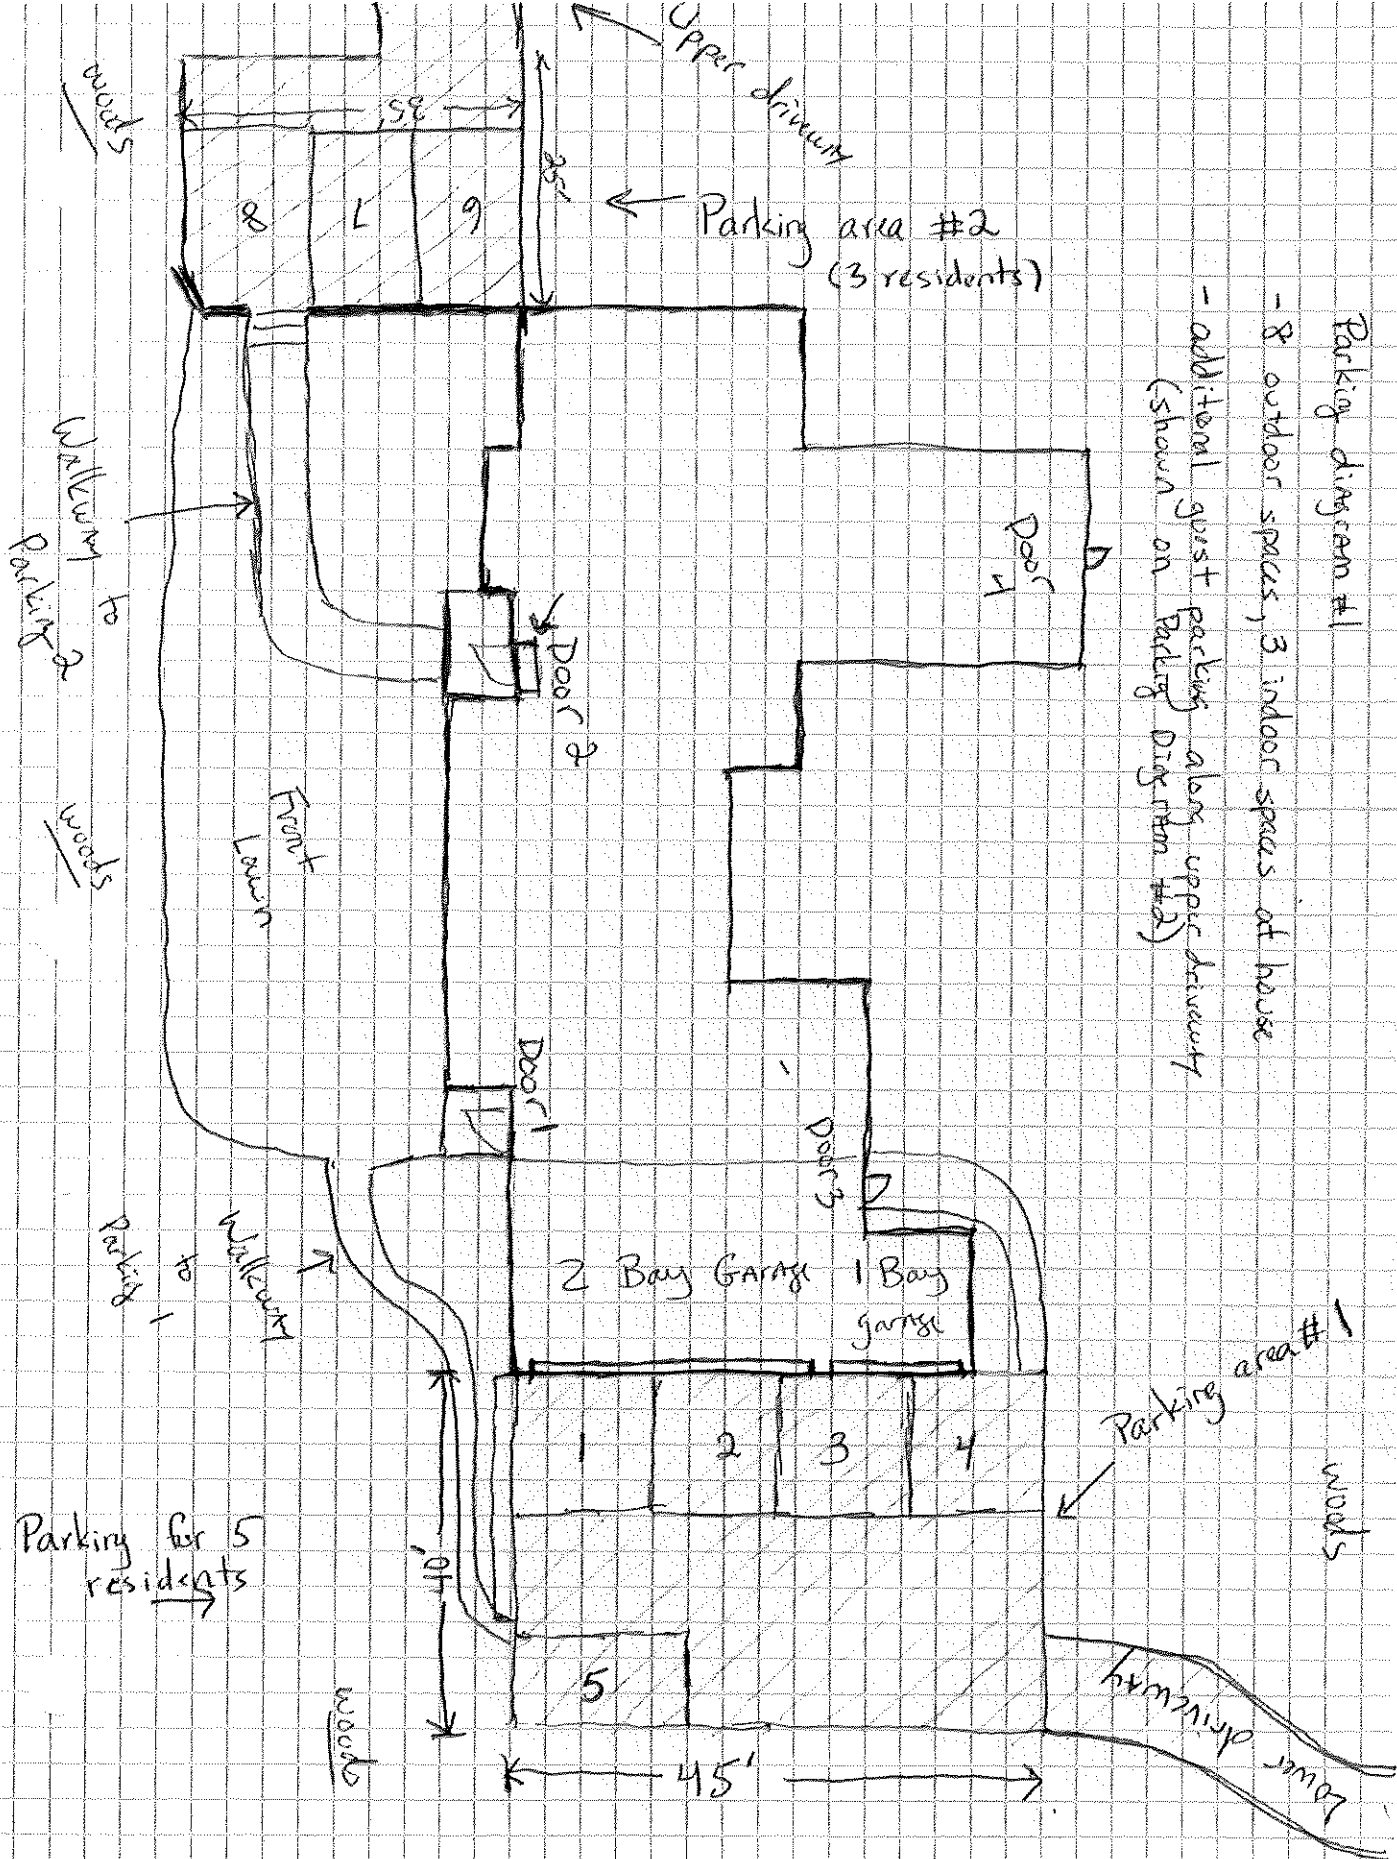 Parking diagram #1
- 8 outdoor spaces, 3 indoor spaces at house
- additional guest parking along upper driveway
(shown on Parking Diagram #2)
Upper driveway
woods
35'
25'
8
7
6
Parking area #2
(3 residents)
Walkway to
Parking 2
Door 4
Door 2
woods
Front
Lawn
Door 1
Door 3
Walkway
to
Parking 1
2 Bay Garage
1 Bay
garage
Parking area #1
1
2
3
4
woods
Parking for 5
residents
40'
5
woods
45'
Lower
driveway